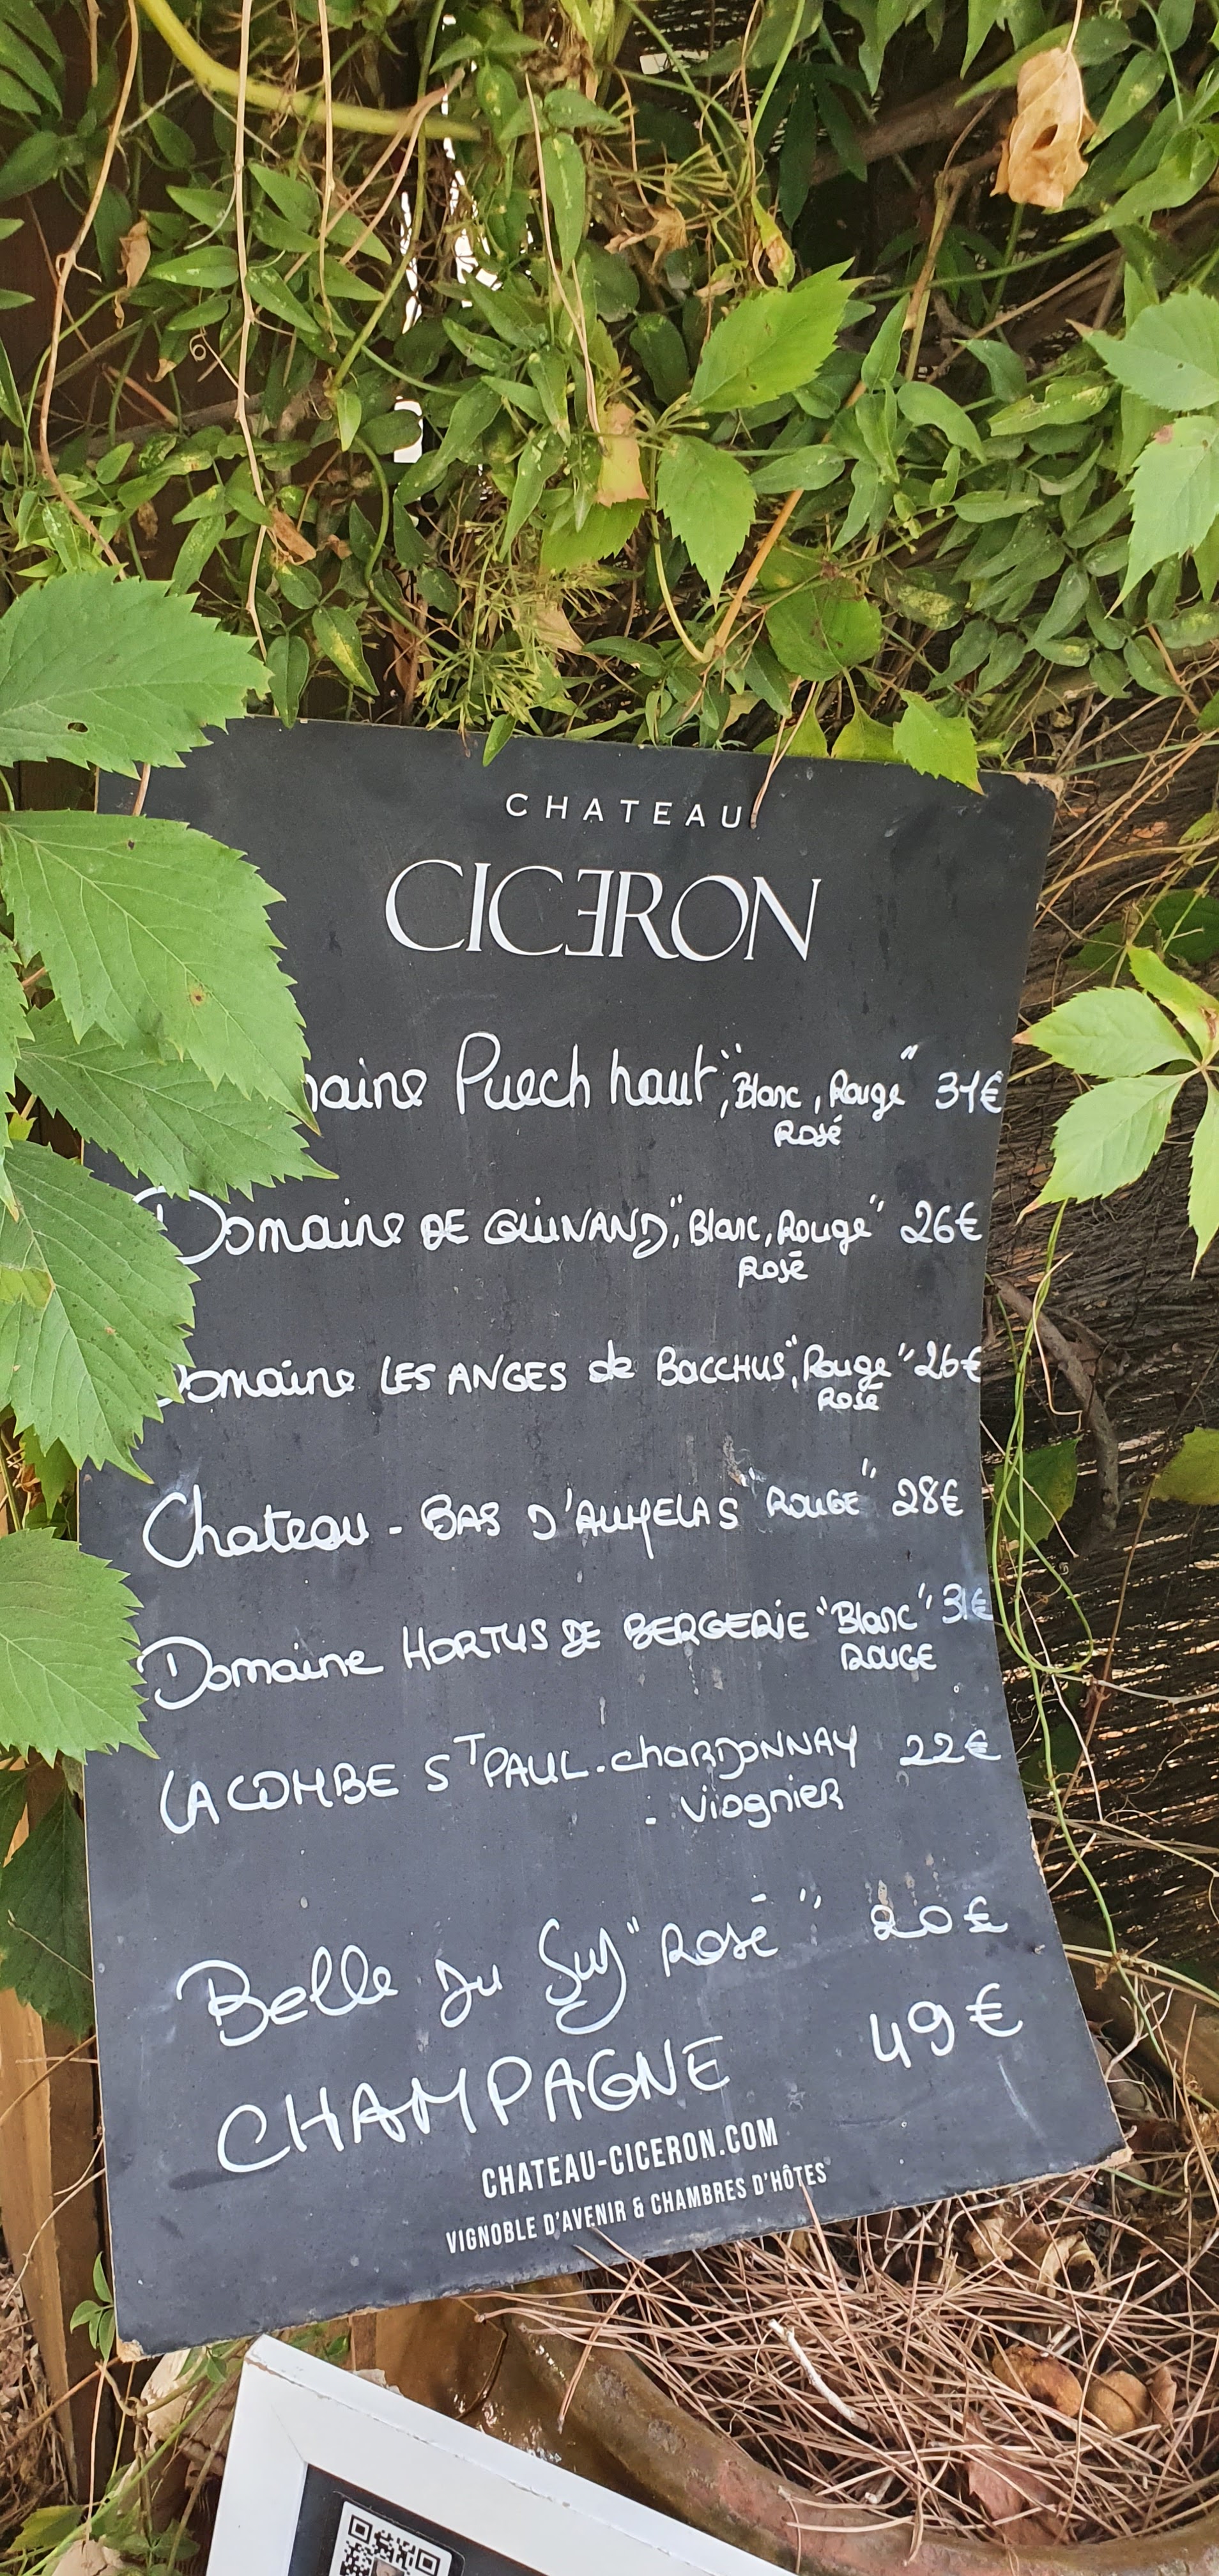 CHATEAU
CICERON
maine Puech haut, "Blanc, Rouge" 31€
Rosé
Domaine DE GUINAND, "Blanc, Rouge" 26€
Rosé
Domaine LES ANGES de BACCHUS, "Rouge" 26€
Rosé
Chateau - BAS D'AUMELAS "ROUGE" 28€
Domaine HORTUS DE BERGERIE "Blanc" 31€
ROUGE
LA COMBE ST PAUL - CHARDONNAY 22€
. Viognier
Belle Du Suy "Rosé" 20€
CHAMPAGNE 49€
CHATEAU-CICERON.COM
VIGNOBLE D'AVENIR & CHAMBRES D'HÔTES